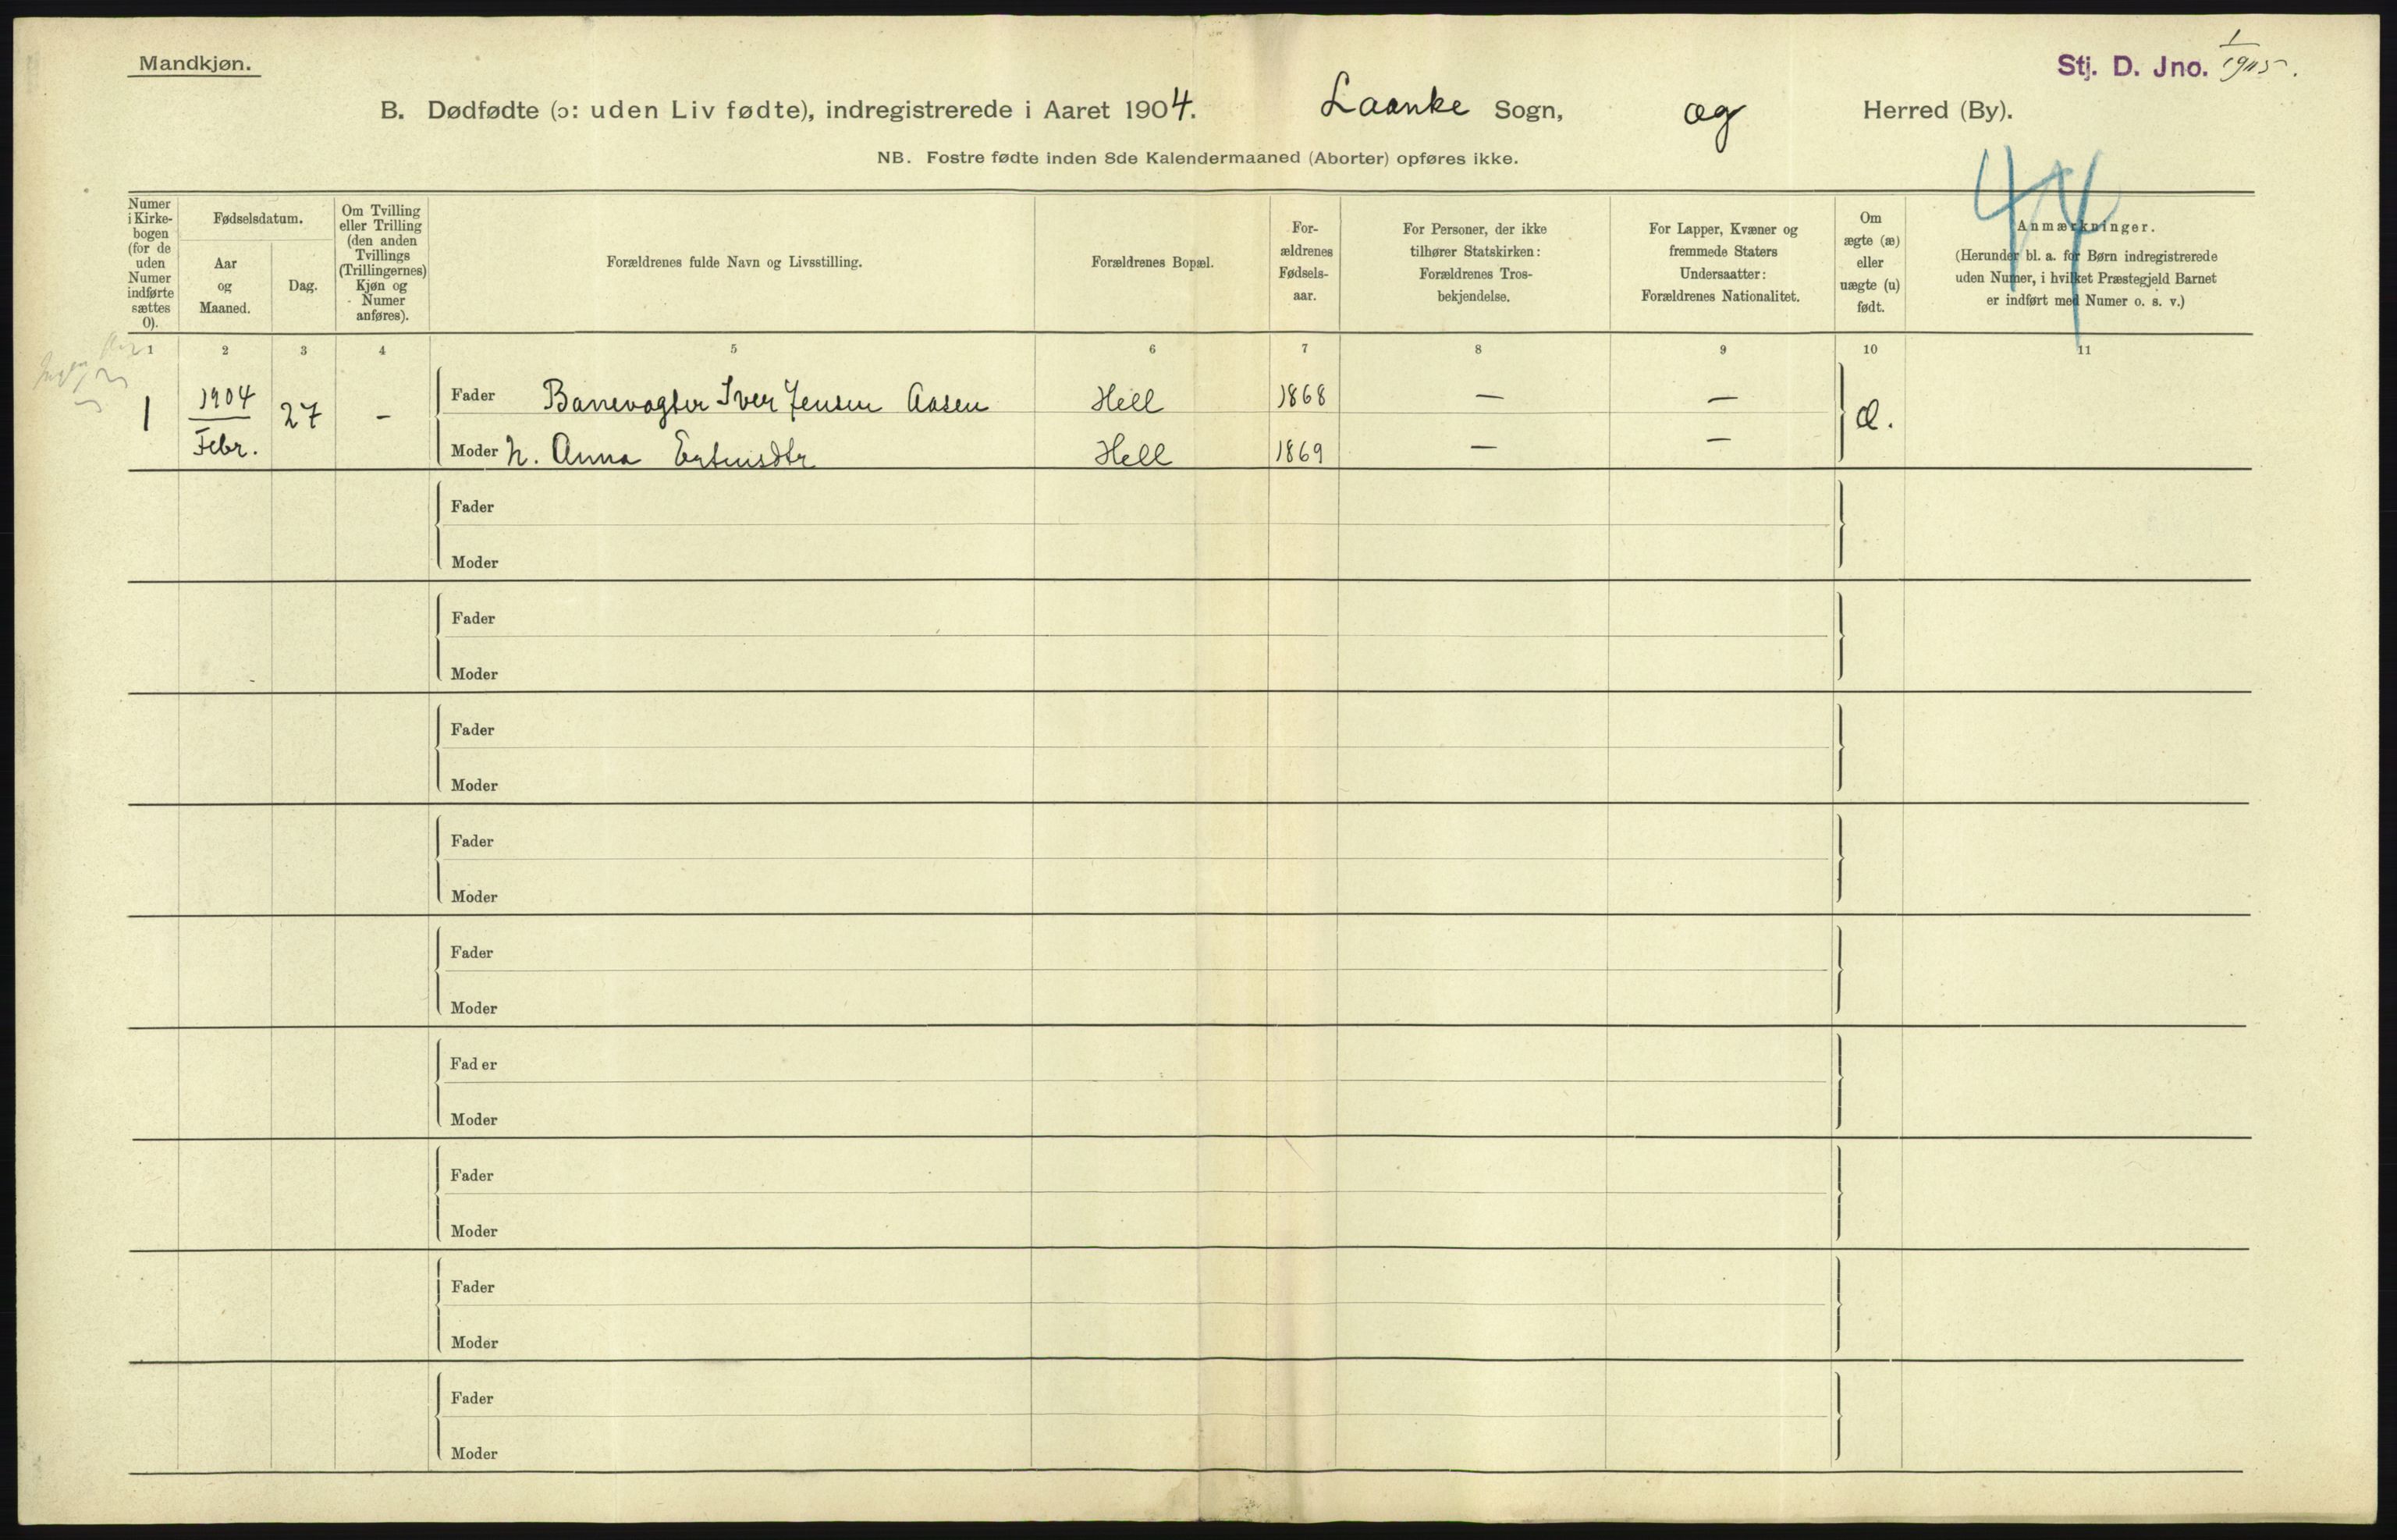 Mandkjøn.
Stj. D. Jno. 1/1905.
B. Dødfødte (ɔ: uden Liv fødte), indregistrerede i Aaret 1904. Laanke Sogn, og Herred (By).
NB. Fostre fødte inden 8de Kalendermaaned (Aborter) opføres ikke.
44
Numer i Kirke-bogen (for de uden Numer indførte sættes 0).
Fødselsdatum.
Aar og Maaned.
Dag.
Om Tvilling eller Trilling (den anden Tvillings (Trillingernes) Kjøn og Numer anføres).
Forældrenes fulde Navn og Livsstilling.
Forældrenes Bopæl.
For-ældrenes Fødsels-aar.
For Personer, der ikke tilhører Statskirken: Forældrenes Tros-bekjendelse.
For Lapper, Kvæner og fremmede Staters Undersaatter: Forældrenes Nationalitet.
Om ægte (æ) eller uægte (u) født.
Anmærkninger.
(Herunder bl. a. for Børn indregistrerede uden Numer, i hvilket Præstegjeld Barnet er indført med Numer o. s. v.)
1 2 3 4 5 6 7 8 9 10 11
1 1904 Febr. 27 – Fader Banevogter Iver Jensen Aasen Hell 1868 — — æ.
Moder h. Anna Hell 1869 — —
Fader
Moder
Fader
Moder
Fader
Moder
Fader
Moder
Fader
Moder
Fader
Moder
Fader
Moder
Fader
Moder
Fader
Moder